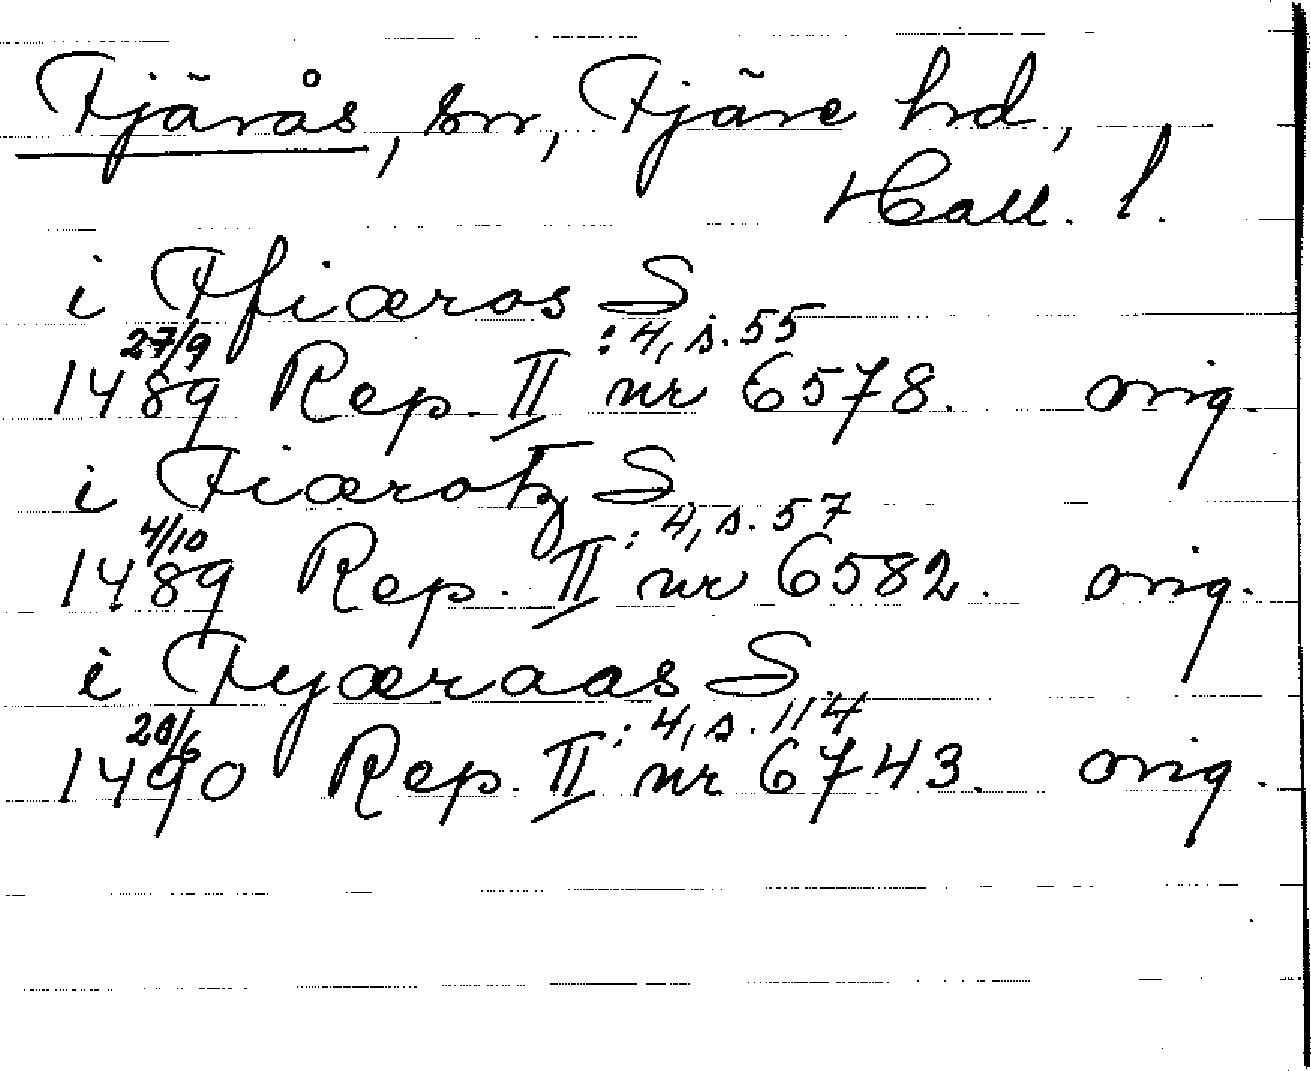 Fjärås, sn, Fjäre hd,
Hall. l.
i Ffiæros S
27/9 :4, s. 55
1489 Rep. II nr 6578. orig.
i Fiærotz S
4/10 :4, s. 57
1489 Rep. II nr 6582. orig.
i Fyæraas S
20/6 :4, s. 114
1490 Rep. II nr 6743. orig.